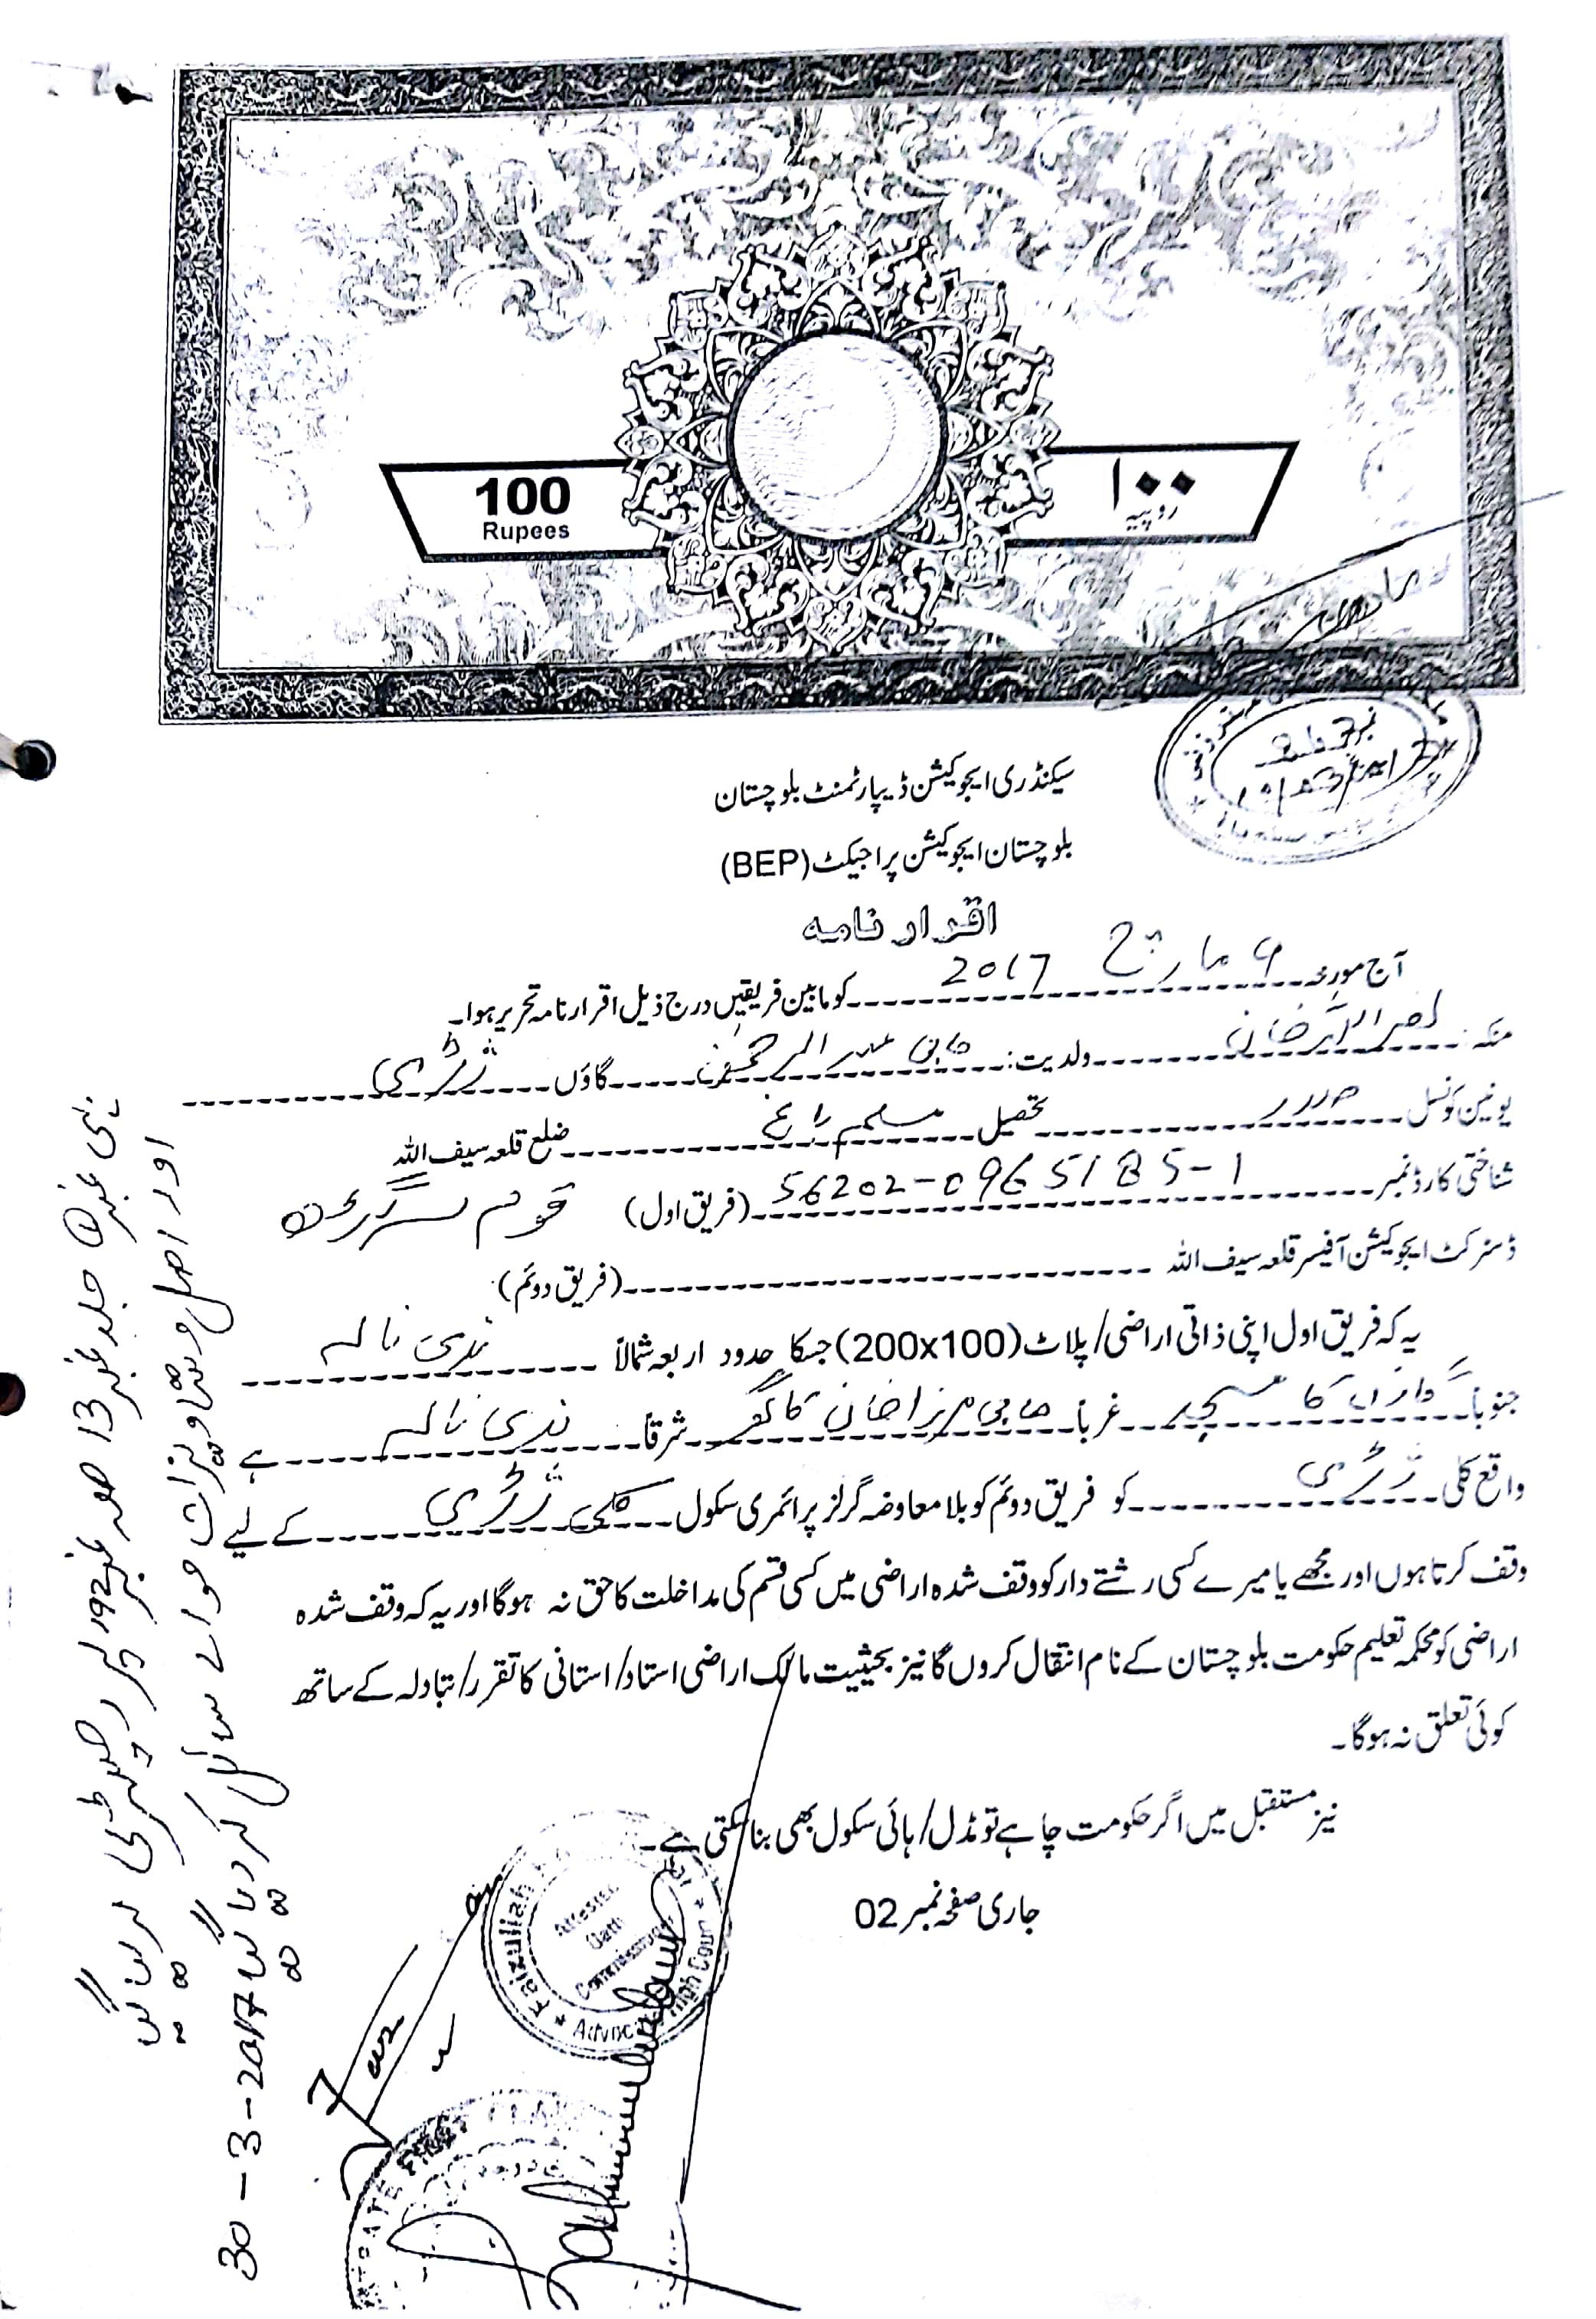 100
Rupees
۱۰۰
روپیہ
سیکنڈری ایجوکیشن ڈیپارٹمنٹ بلوچستان
بلوچستان ایجوکیشن پراجیکٹ (BEP)
اقرار نامہ
آج مورخہ 9 مارچ 2017 کو مابین فریقین درج ذیل اقرار نامہ تحریر ہوا۔
منکہ: نصر اللہ خان ولدیت: حاجی عبدالرحمن گاؤں
یونین کونسل تحصیل مسلم باغ ضلع قلعہ سیف اللہ
شناختی کارڈ نمبر 56202-0965185-1 (فریق اول) قوم
ڈسٹرکٹ ایجوکیشن آفیسر قلعہ سیف اللہ (فریق دوئم)
یہ کہ فریق اول اپنی ذاتی اراضی/پلاٹ (200x100) جسکا حدود اربعہ شمالاً ندی نالہ
جنوباً کا مسجد غرباً حاجی میرزا خان کا گھر شرقاً ندی نالہ ہے
واقع کلی کو فریق دوئم کو بلا معاوضہ گرلز پرائمری سکول کلی کے لیے
وقف کرتا ہوں اور مجھے یا میرے کسی رشتے دار کو وقف شدہ اراضی میں کسی قسم کی مداخلت کا حق نہ ہوگا اور یہ کہ وقف شدہ
اراضی کو محکمہ تعلیم حکومت بلوچستان کے نام انتقال کروں گا نیز بحیثیت مالک اراضی استاد/استانی کا تقرر/تبادلہ کے ساتھ
کوئی تعلق نہ ہوگا۔
نیز مستقبل میں اگر حکومت چاہے تو مڈل/ہائی سکول بھی بنا سکتی ہے۔
جاری صفحہ نمبر 02
Faizullah
Attested
Oath
Commissioner
High Court
جلد نمبر 13 صفحہ نمبر 192 پر رجسٹری کیا گیا
اور اصل دستاویزات حوالہ سائل کر دیا گیا
30-3-2017